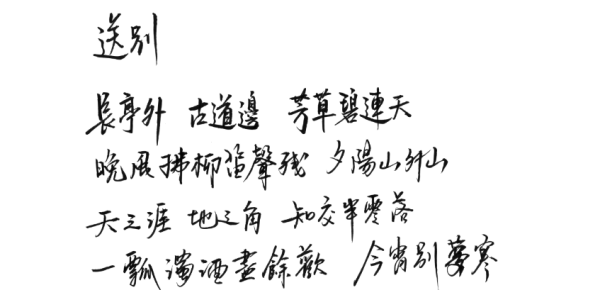 送別
長亭外 古道邊 芳草碧連天
晚風拂柳笛聲殘 夕陽山外山
天之涯 地之角 知交半零落
一瓢濁酒盡餘歡 今宵別夢寒